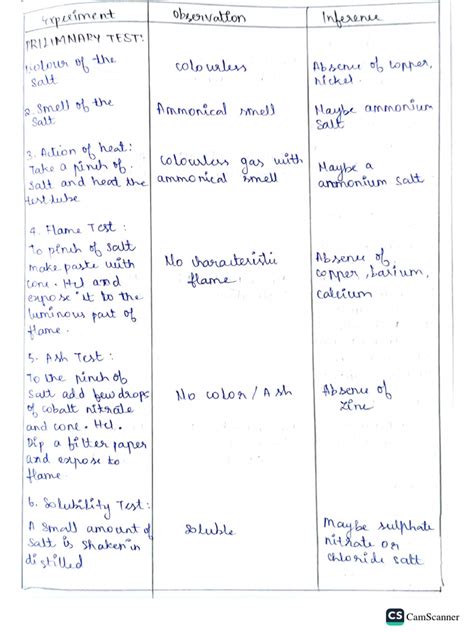 Experiment Observation Inference
PRILIMNARY TEST:
Colour of the salt
colourless
Absense of copper, nickel.
2. Smell of the salt
Ammonical smell
Maybe ammonium salt
3. Action of heat:
Take a pinch of
salt and heat the
test tube
colourless gas with
ammonical smell
Maybe a
ammonium salt
4. Flame Test :
To pinch of salt
make paste with
conc. Hcl and
expose it to the
luminous part of
flame.
No characteristic
flame.
Absense of
copper, barium,
calcium
5. Ash Test :
To the pinch of
salt add few drops
of cobalt nitrate
and conc. Hcl.
Dip a filter paper
and expose to
flame
No color / Ash
Absense of
zinc
6. Solubility Test:
A small amount of
salt is shaken in
distilled
soluble
Maybe sulphate
nitrate or
chloride salt
CS CamScanner